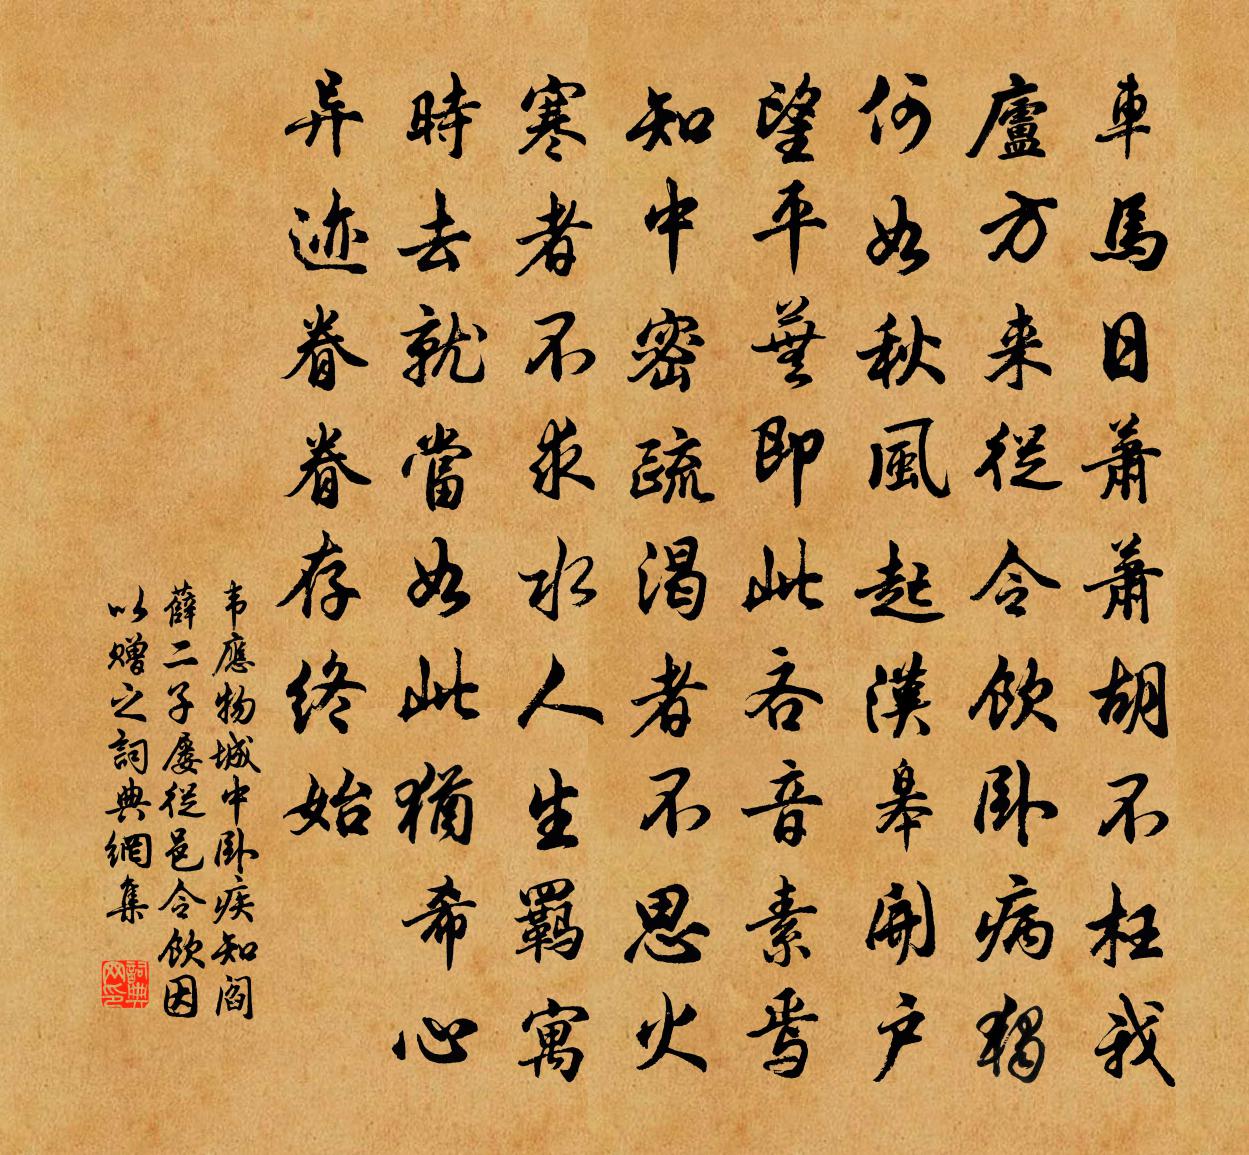 車馬日蕭蕭胡不枉我
廬方来從令飲卧病獨
何如秋風起漢皋開户
望平蕪即此吝音素焉
知中密疏渴者不思火
寒者不求水人生羁寓
時去就當如此猶希心
异迹眷眷存終始
韦應物城中卧疾知阎
薛二子屡從邑令飲因
以赠之詞典網集
詞典网印